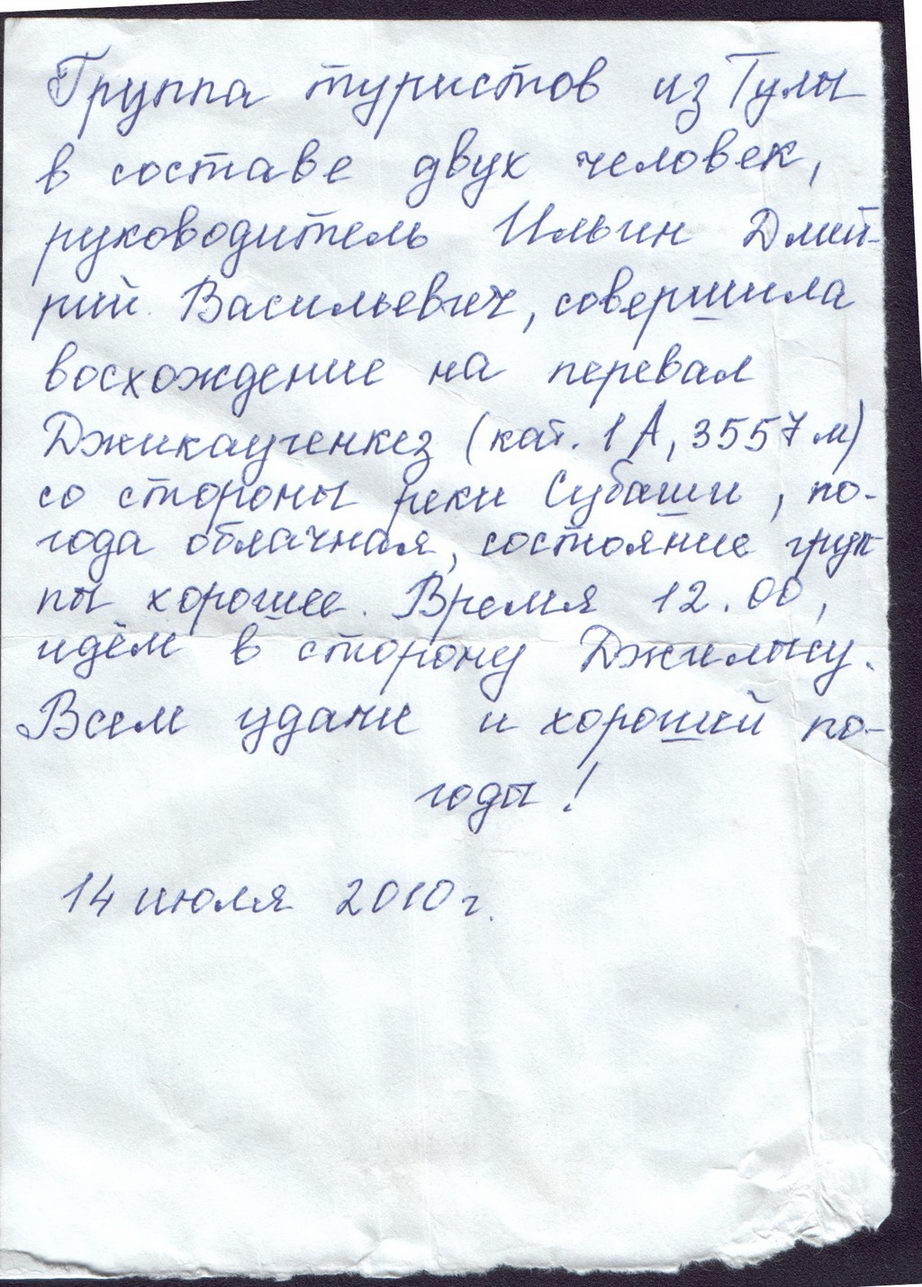 Группа туристов из Тулы
в составе двух человек,
руководитель Ильин Дмит-
рий Васильевич, совершила
восхождение на перевал
Джикаугенкез (кат. 1А, 3557 м)
со стороны реки Субаши, по-
года облачная, состояние груп
пы хорошее. Время 12.00,
идём в сторону Джилысу.
Всем удачи и хороший по-
годы!
14 июля 2010 г.